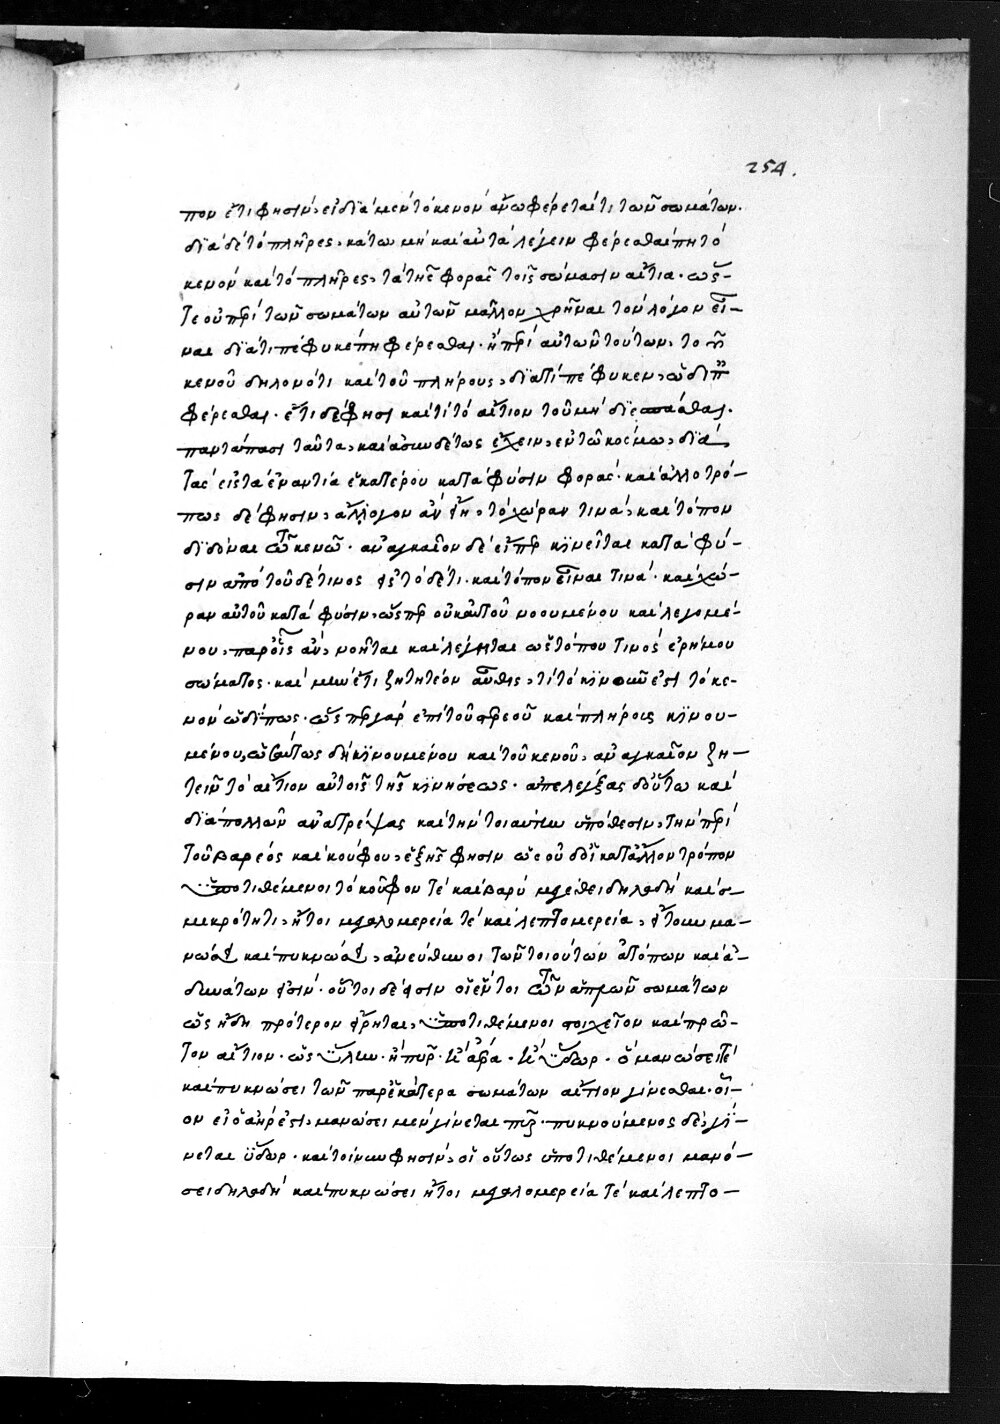 254.
πον ἔτι φησὶν, εἰ διὰ μὲν τὸ κενὸν ἄνω φέρεταί τι τῶν σωμάτων.
διὰ δὲ τὸ πλῆρες, κάτω μὴ καὶ αὐτὰ λέγειν φέρεσθαι ἐπὶ τὸ
κενὸν καὶ τὸ πλῆρες, τὰ τῆς φορᾶς τοῖς σώμασιν αἴτια. ὥς-
τε οὐ περὶ τῶν σωμάτων αὐτῶν μᾶλλον χρῆναι τὸν λόγον εἶ-
ναι διὰ τί πέφυκε πῆ φέρεσθαι. ἢ περὶ αὐτῶν τούτων, το ῦ
κενοῦ δηλονότι καὶ τοῦ πλήρους, διατί πέφυκεν, ὡδίπῃ
φέρεσθαι. ἔτι δέ φησι καὶ τί τὸ αἴτιον τοῦ μὴ διεσπάσθαι
παντάπασι ταῦτα, καὶ ἀσυνδέτως ἔχειν, ἐν τῷ κόσμῳ, διὰ
τὰς εἰς τὰ ἐναντία ἑκατέρου κατὰ φύσιν φοράς. καὶ ἄλλο τρό-
πως δέ φησιν, ἄλλογον ἂν εἴη, τὸ χώραν τινὰ, καὶ τόπον
διδόναι τῷ κενῷ. ἀναγκαῖον δὲ εἴπερ κινεῖται κατὰ φύ-
σιν ἀπὸ τοῦδέ τινος εἰς τὸ δέ τι. καὶ τόπον εἶναι τινά. καὶ χώ-
ραν αὐτοῦ κατὰ φύσιν, ὥσπερ οὐκ αὐτοῦ νοουμένου καὶ λεγομέ-
νου, παρ' οἷς ἂν, νοῆται καὶ λέγηται ὡς τόπου τινὸς ἐρήμου
σώματος. καὶ μὴν ἔτι ζητητέον αὖθις, τί τὸ κινοῦν ἐστι τὸ κε-
νὸν ὡδίπως. ὥσπερ γὰρ ἐπὶ τοῦ στερεοῦ καὶ πλήρους κινου-
μένου, οὕτως δὴ κινουμένου καὶ τοῦ κενοῦ, ἀναγκαῖον ζη-
τεῖν τὸ αἴτιον αὐτοῖς τῆς κινήσεως. ἀπελέγξας δ' οὕτω καὶ
διὰ πολλῶν ἀνατρέψας καὶ τὴν τοιαύτην ὑπόθεσιν, τὴν περὶ
τοῦ βαρέος καὶ κούφου, ἑξῆς φησιν ὡς οὐδ' οἱ κατ' ἄλλον τρόπον
ὑποτιθέμενοι τὸ κοῦφον τὲ καὶ βαρὺ μεγέθει δηλαδὴ καὶ σ-
μικρότητι, ἤτοι μεγαλομερείᾳ τὲ καὶ λεπτομερείᾳ, εἴτουν μα-
νώσει καὶ πυκνώσει, ἀνεύθυνοι τῶν τοιούτων ἀτόπων καὶ ἀ-
δυνάτων εἰσίν. οὗτοι δέ εἰσιν οἱ ἕν τι τῶν ἁπλῶν σωμάτων
ὡς ἤδη πρότερον εἴρηται, ὑποτιθέμενοι στοιχεῖον καὶ πρῶ-
τον αἴτιον. ὡς ὕλην. ἢ πῦρ. ἢ ἀέρα. ἢ ὕδωρ. ὃ μανώσει τὲ
καὶ πυκνώσει τῶν παρ' ἑκάτερα σωμάτων αἴτιον γίνεσθαι. οἷ-
ον εἰ ὁ ἀήρ ἐστι, μανώσει μὲν γίνεται πῦρ. πυκνούμενος δὲ, γί-
νεται ὕδωρ. καὶ τοίνυν φησὶν, οἱ οὕτως ὑποτιθέμενοι μανό-
σει δηλαδὴ καὶ πυκνώσει ἤτοι μεγαλομερείᾳ τὲ καὶ λεπτο-